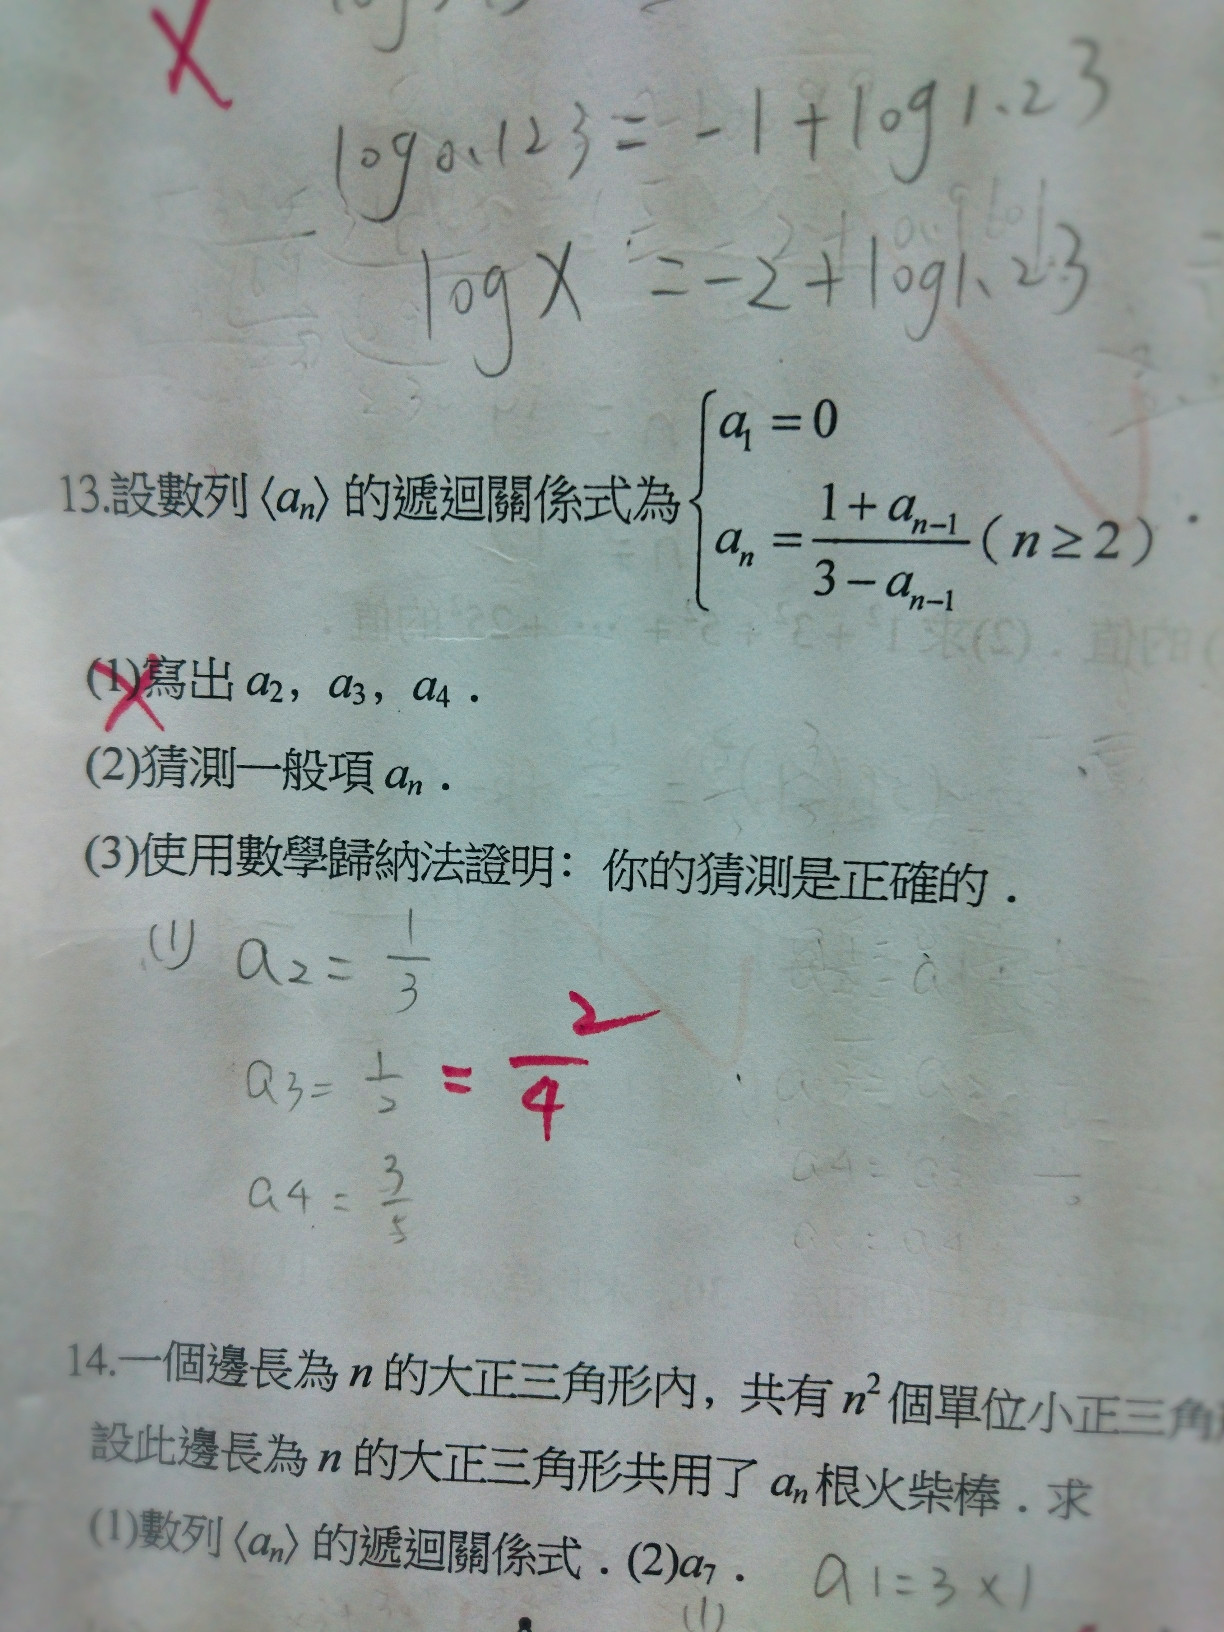 log 0.123 = -1 + log 1.23
log x = -2 + log 1.23
13.設數列⟨aₙ⟩的遞迴關係式為 { a₁ = 0
aₙ = (1 + aₙ₋₁)/(3 − aₙ₋₁) ( n ≥ 2 ) .
(1)寫出 a₂, a₃, a₄ .
(2)猜測一般項 aₙ .
(3)使用數學歸納法證明：你的猜測是正確的 .
(1) a2 = 1/3
a3 = 1/2 = 2/4
a4 = 3/5
14.一個邊長為 n 的大正三角形內, 共有 n² 個單位小正三角
設此邊長為 n 的大正三角形共用了 aₙ 根火柴棒 . 求
(1)數列⟨aₙ⟩的遞迴關係式 . (2)a₇ . a1 = 3 × 1
(1)